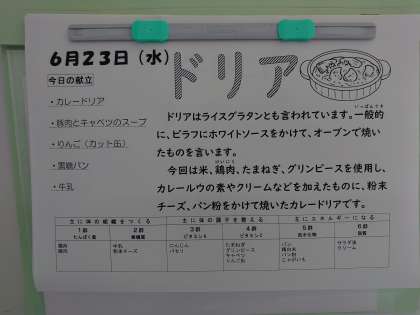 6月23日（水）
ドリア
今日の献立
・カレードリア
・豚肉とキャベツのスープ
・りんご（カット缶）
・黒糖パン
・牛乳
ドリアはライスグラタンとも言われています。一般的
いっぱんてき
に、ピラフにホワイトソースをかけて、オーブンで焼い
たものを言います。
けいにく
今回は米、鶏肉、たまねぎ、グリンピースを使用し、
カレールウの素やクリームなどを加えたものに、粉末
チーズ、パン粉をかけて焼いたカレードリアです。
主に体の組織をつくる 主に体の調子を整える 主にエネルギーになる
1群 2群 3群 4群 5群 6群
たんぱく質 無機質 ビタミンA ビタミンC 炭水化物 脂質
鶏肉 牛乳 にんじん たまねぎ パン サラダ油
豚肉 粉末チーズ パセリ グリンピース 精白米 クリーム
キャベツ パン粉
りんご缶 じゃがいも